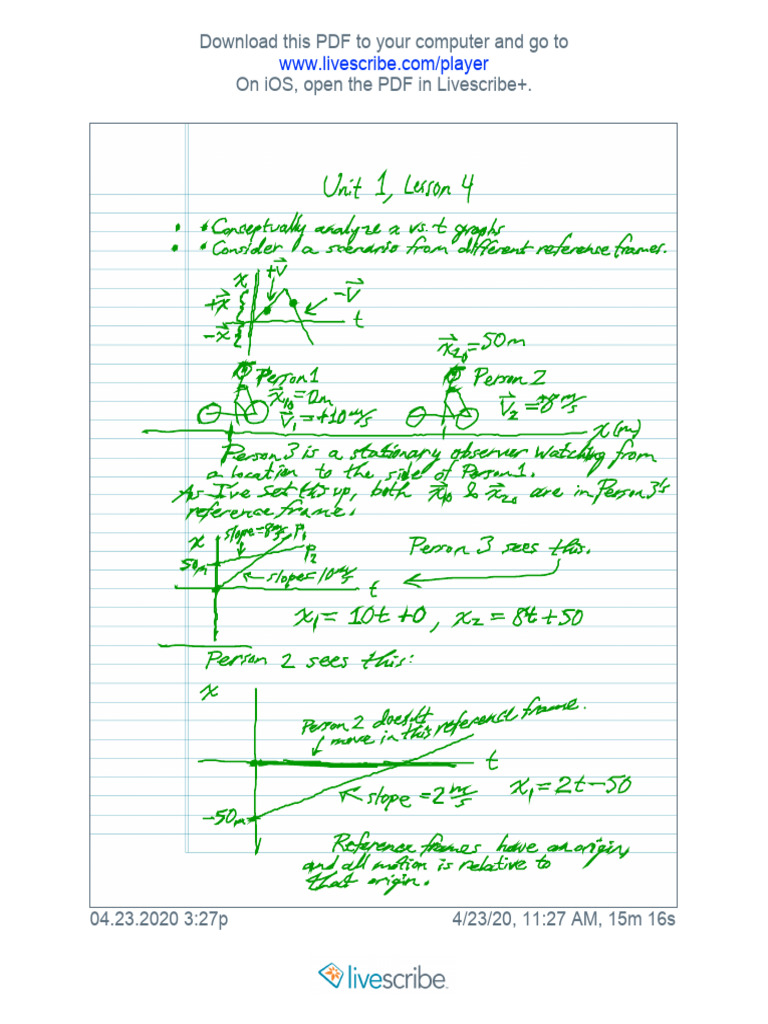 Download this PDF to your computer and go to
www.livescribe.com/player
On iOS, open the PDF in Livescribe+.
Unit 1, Lesson 4
• • Conceptually analyze x vs. t graphs
• • Consider a scenario from different reference frames.
x +v⃗
+x⃗ { -v⃗
-x⃗ { t
x⃗₂₀ = 50m
Person 1 Person 2
x⃗₁₀ = 0m
v⃗₁ = +10 m/s v⃗₂ = 8 m/s
x (m)
Person 3 is a stationary observer watching from
a location to the side of Person 1.
As I've set this up, both x⃗₁₀ & x⃗₂₀ are in Person 3's
reference frame.
slope = 8 m/s P₁
x P₂ Person 3 sees this.
50m
slope = 10 m/s t
x₁ = 10t + 0, x₂ = 8t + 50
Person 2 sees this:
x
Person 2 doesn't
move in this reference frame.
t
slope = 2 m/s x₁ = 2t - 50
-50m
Reference frames have an origin,
and all motion is relative to
that origin.
04.23.2020 3:27p 4/23/20, 11:27 AM, 15m 16s
livescribe